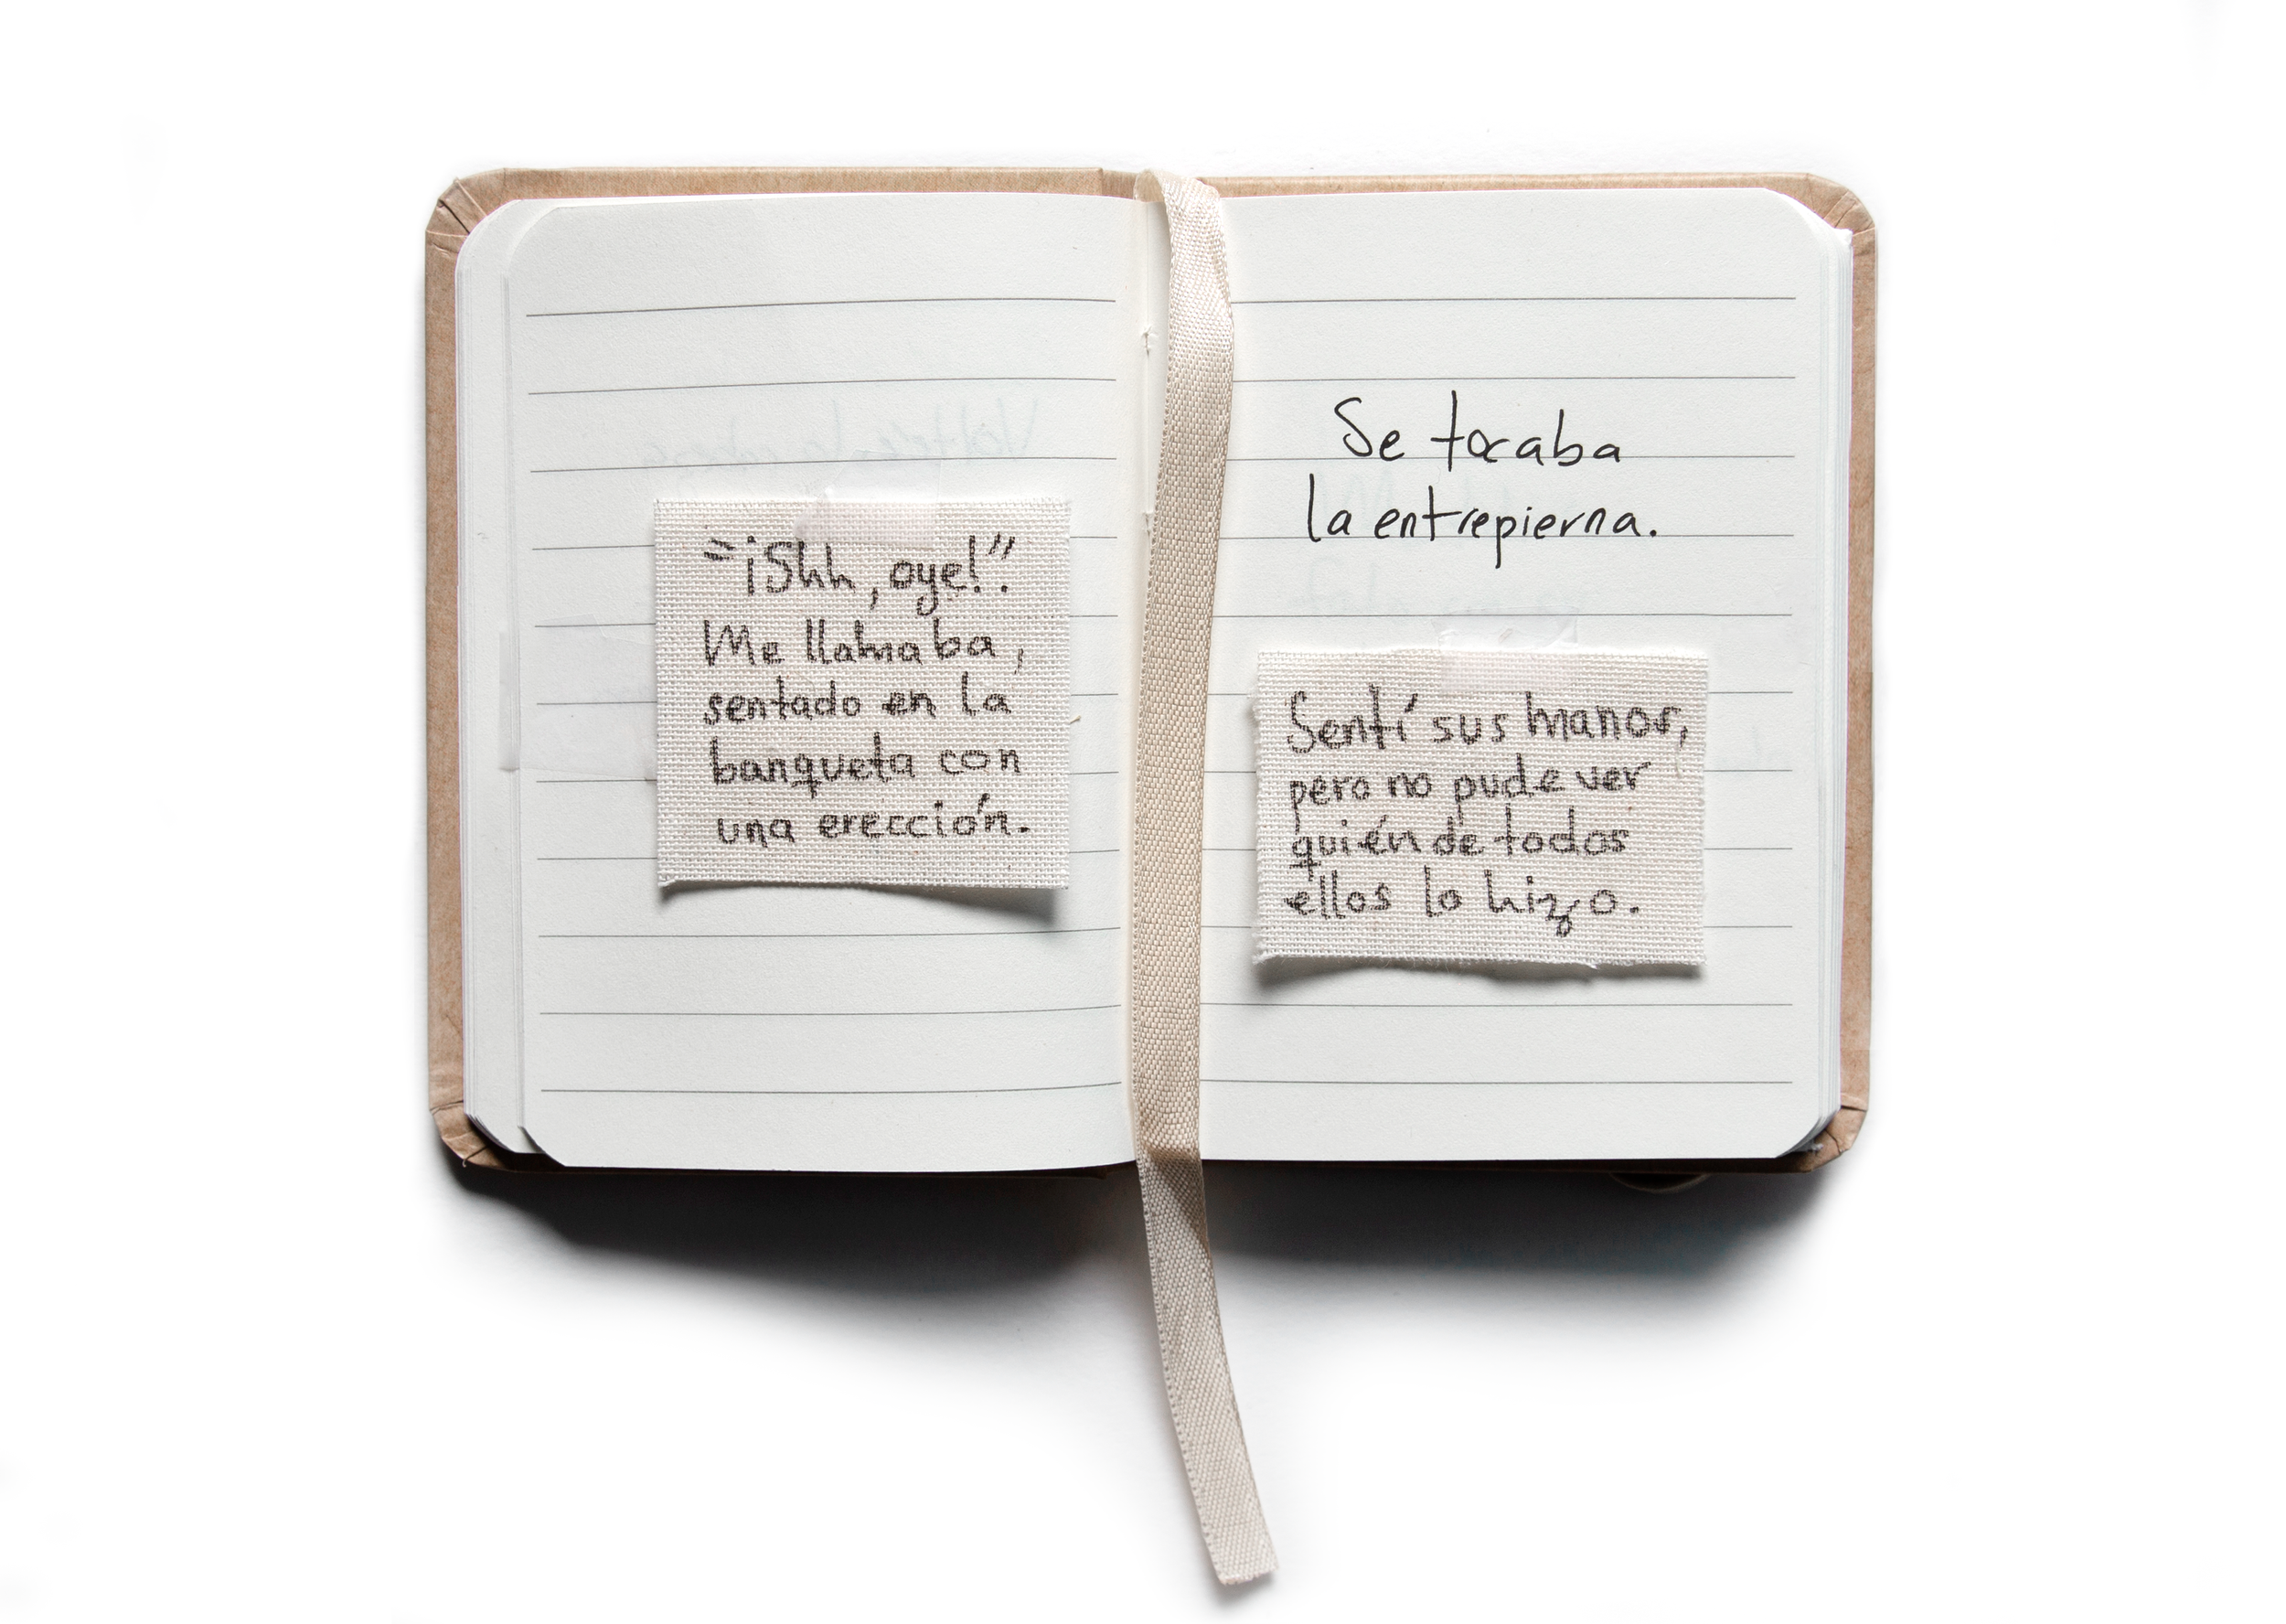 "¡Shh, oye!".
Me llamaba,
sentado en la
banqueta con
una erección.
Se tocaba
la entrepierna.
Sentí sus manos,
pero no pude ver
quién de todos
ellos lo hizo.